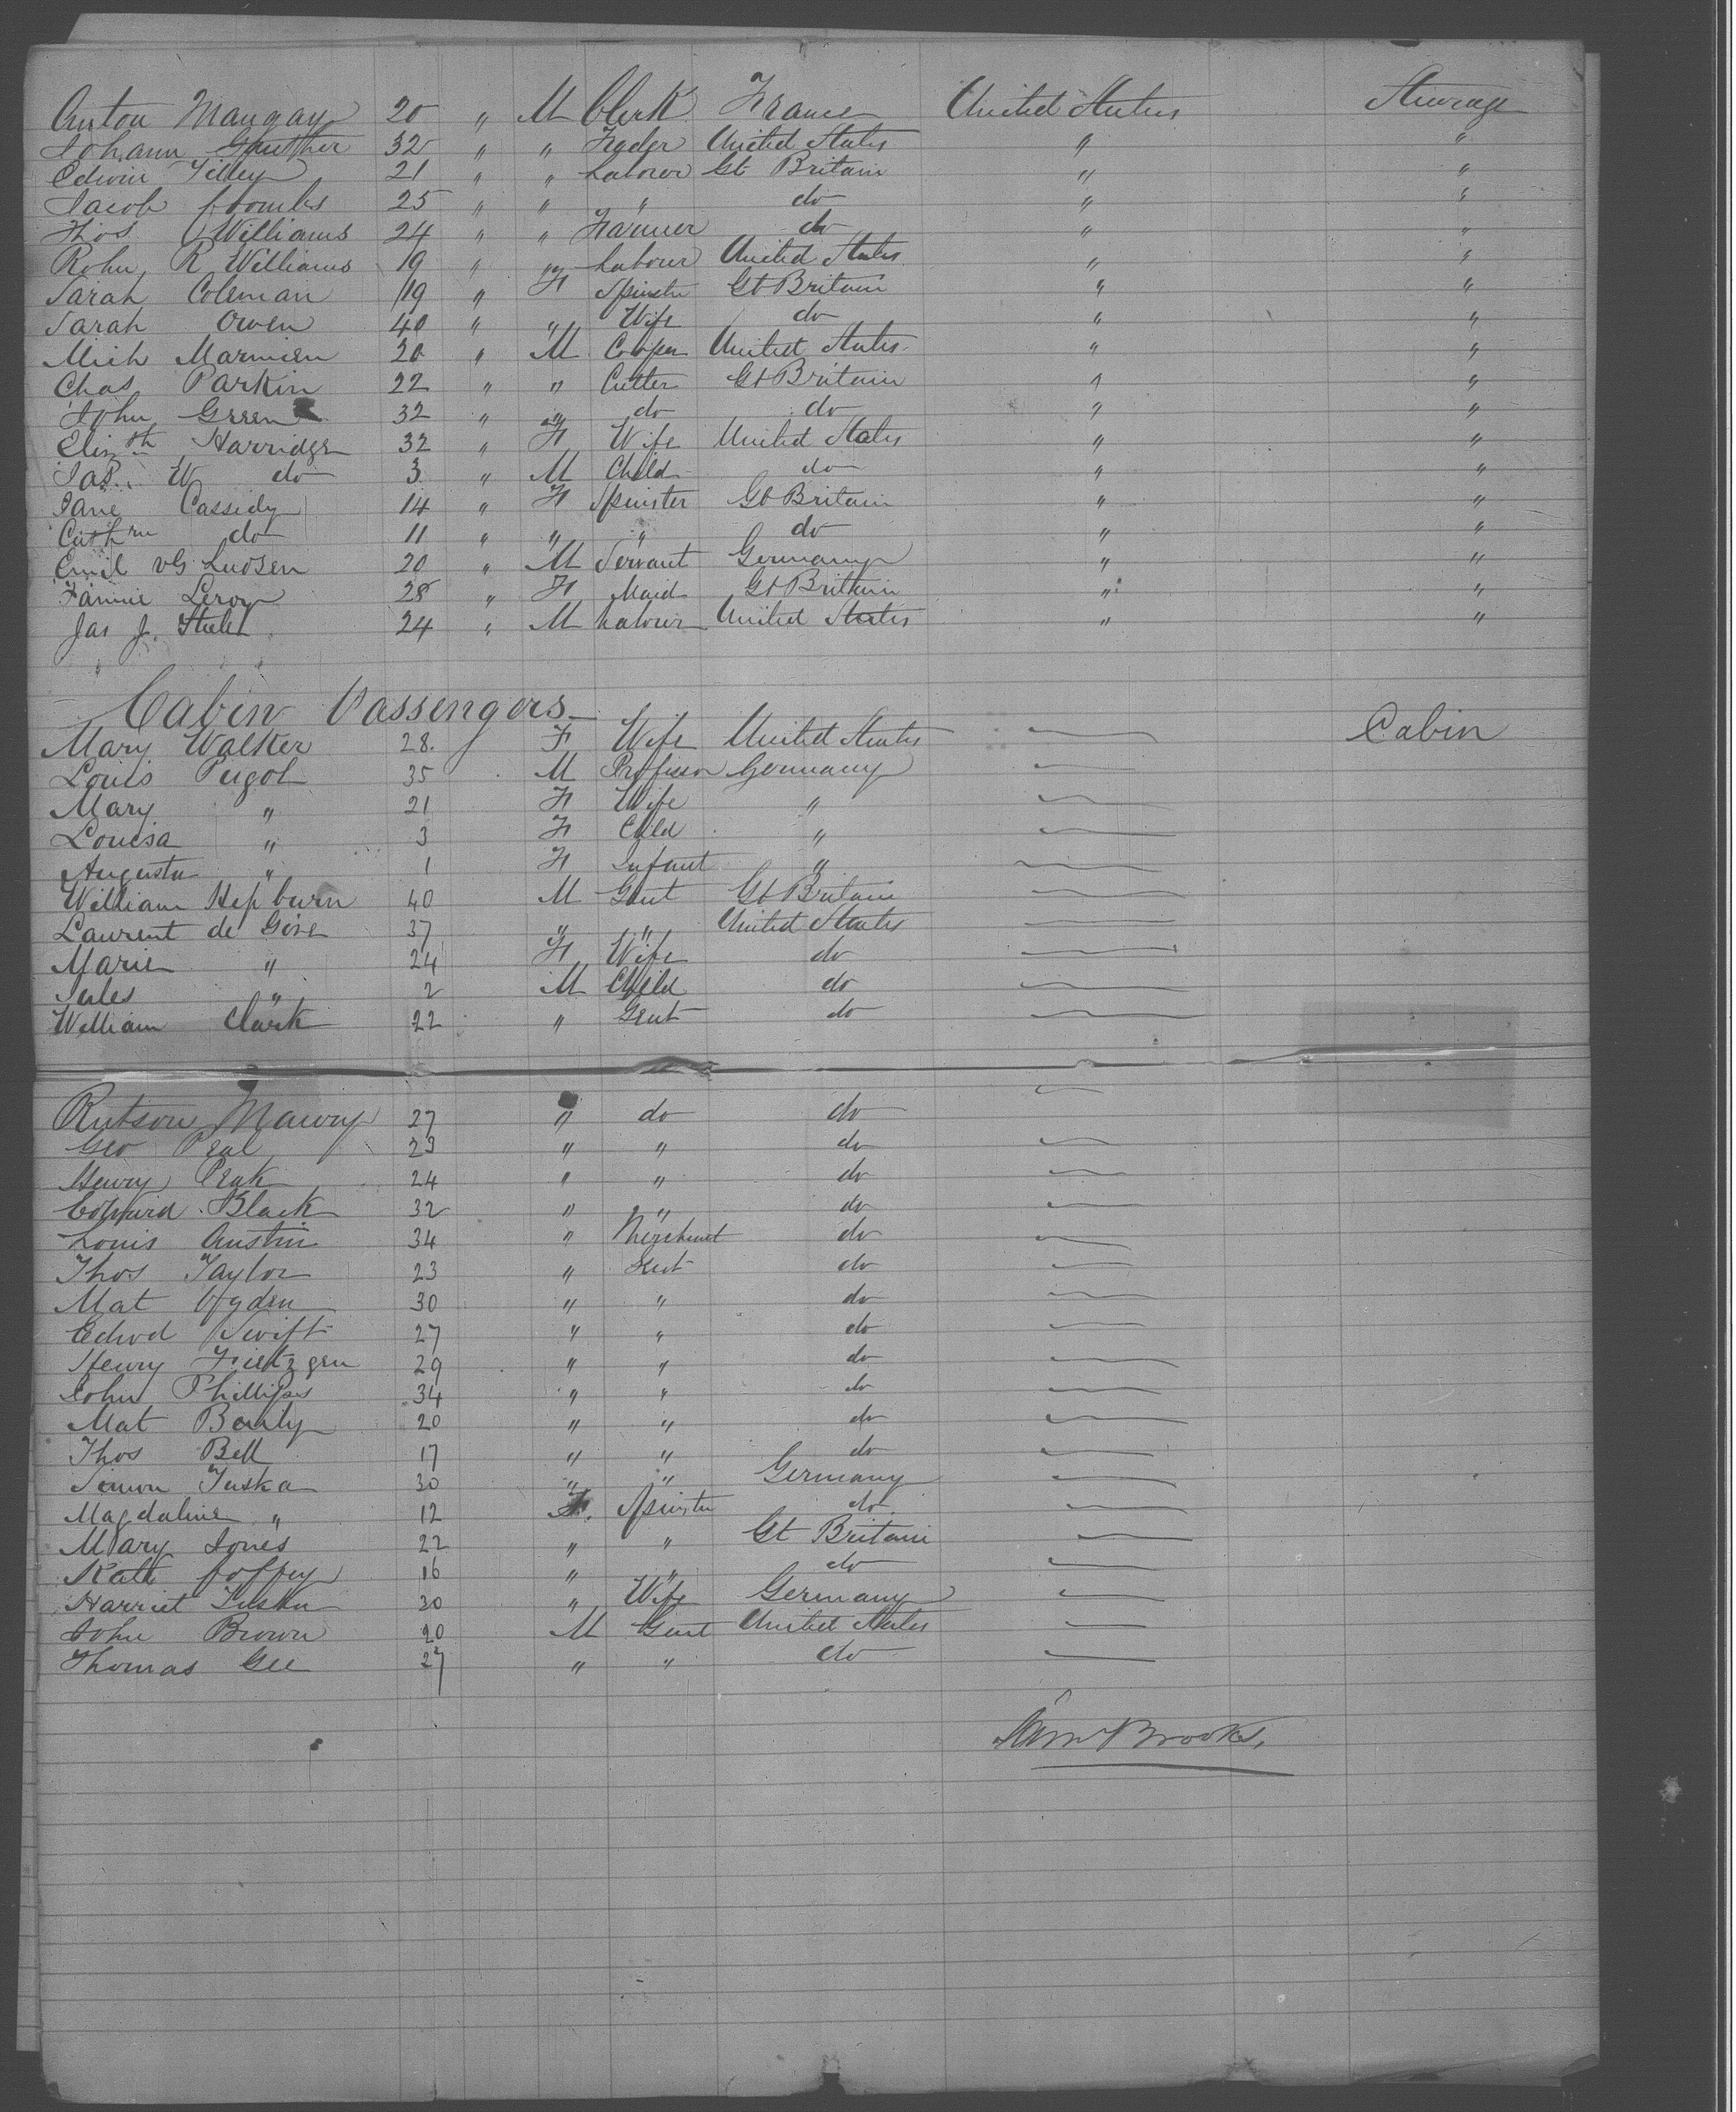 Anton Maugay 20 " M Clerk France United States Steerage
Johann Gunther 32 " " Trader United States " "
Edwin Tilley 21 " " Laborer Gt Britain " "
Jacob Coombs 25 " " " do " "
Thos Williams 24 " " Farmer do " "
John R Williams 19 " " Labourer United States " "
Sarah Coleman 19 " F Spinster Gt Britain " "
Sarah Owen 40 " " Wife do " "
Mich 20 " M Cooper United States " "
Chas Parkin 22 " " Cutler Gt Britain " "
John Green 32 " " do do " "
Elizth Harridge 32 " F Wife United States " "
Jas. W do 3 " M Child do " "
Jane Cassidy 14 " F Spinster Gt Britain " "
Cathrne do 11 " " " do " "
Emil 20 " M Servant Germany " "
Fannie Leroy 28 " F Maid Gt Britain " "
Jas J. 24 " M Labourer United States " "
Cabin Passengers
Mary Walker 28. F Wife United States Cabin
Louis Pugol 35 M Professor Germany
Mary " 21 F Wife "
Louisa " 3 F Child "
Augusta " 1 F Infant "
William Hepburn 40 M Gent Gt Britain
Laurent de Give 37 " " United States
Marie " 24 F Wife do
Jules " 2 M Child do
William Clark 22 " Gent do
Rutson Maury 27 " do do
Geo Peal 23 " " do
Henry Peak 24 " " do
Edward Black 32 " " do
Louis Austin 34 " Merchant do
Thos Taylor 23 " Gent do
Mat Ogden 30 " " do
Edwd Swift 27 " " do
Henry 29 " " do
John Phillips 34 " " do
Mat 20 " " do
Thos Bell 17 " " do
Simon Tuska 30 " " Germany
Magdaline " 12 F. Spinster do
Mary Jones 22 " " Gt Britain
Kate Coffey 16 " " do
Harriet Tuska 30 " Wife Germany
John Brown 20 M Gent United States
Thomas Gee 27 " " do
Brooks,